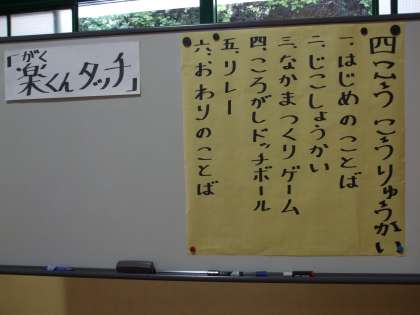 「楽くんタッチ」
がく
四こうこうりゅうかい
一、はじめのことば
二、じこしょうかい
三、なかまつくりゲーム
四、ころがしドッチボール
五、リレー
六、おわりのことば